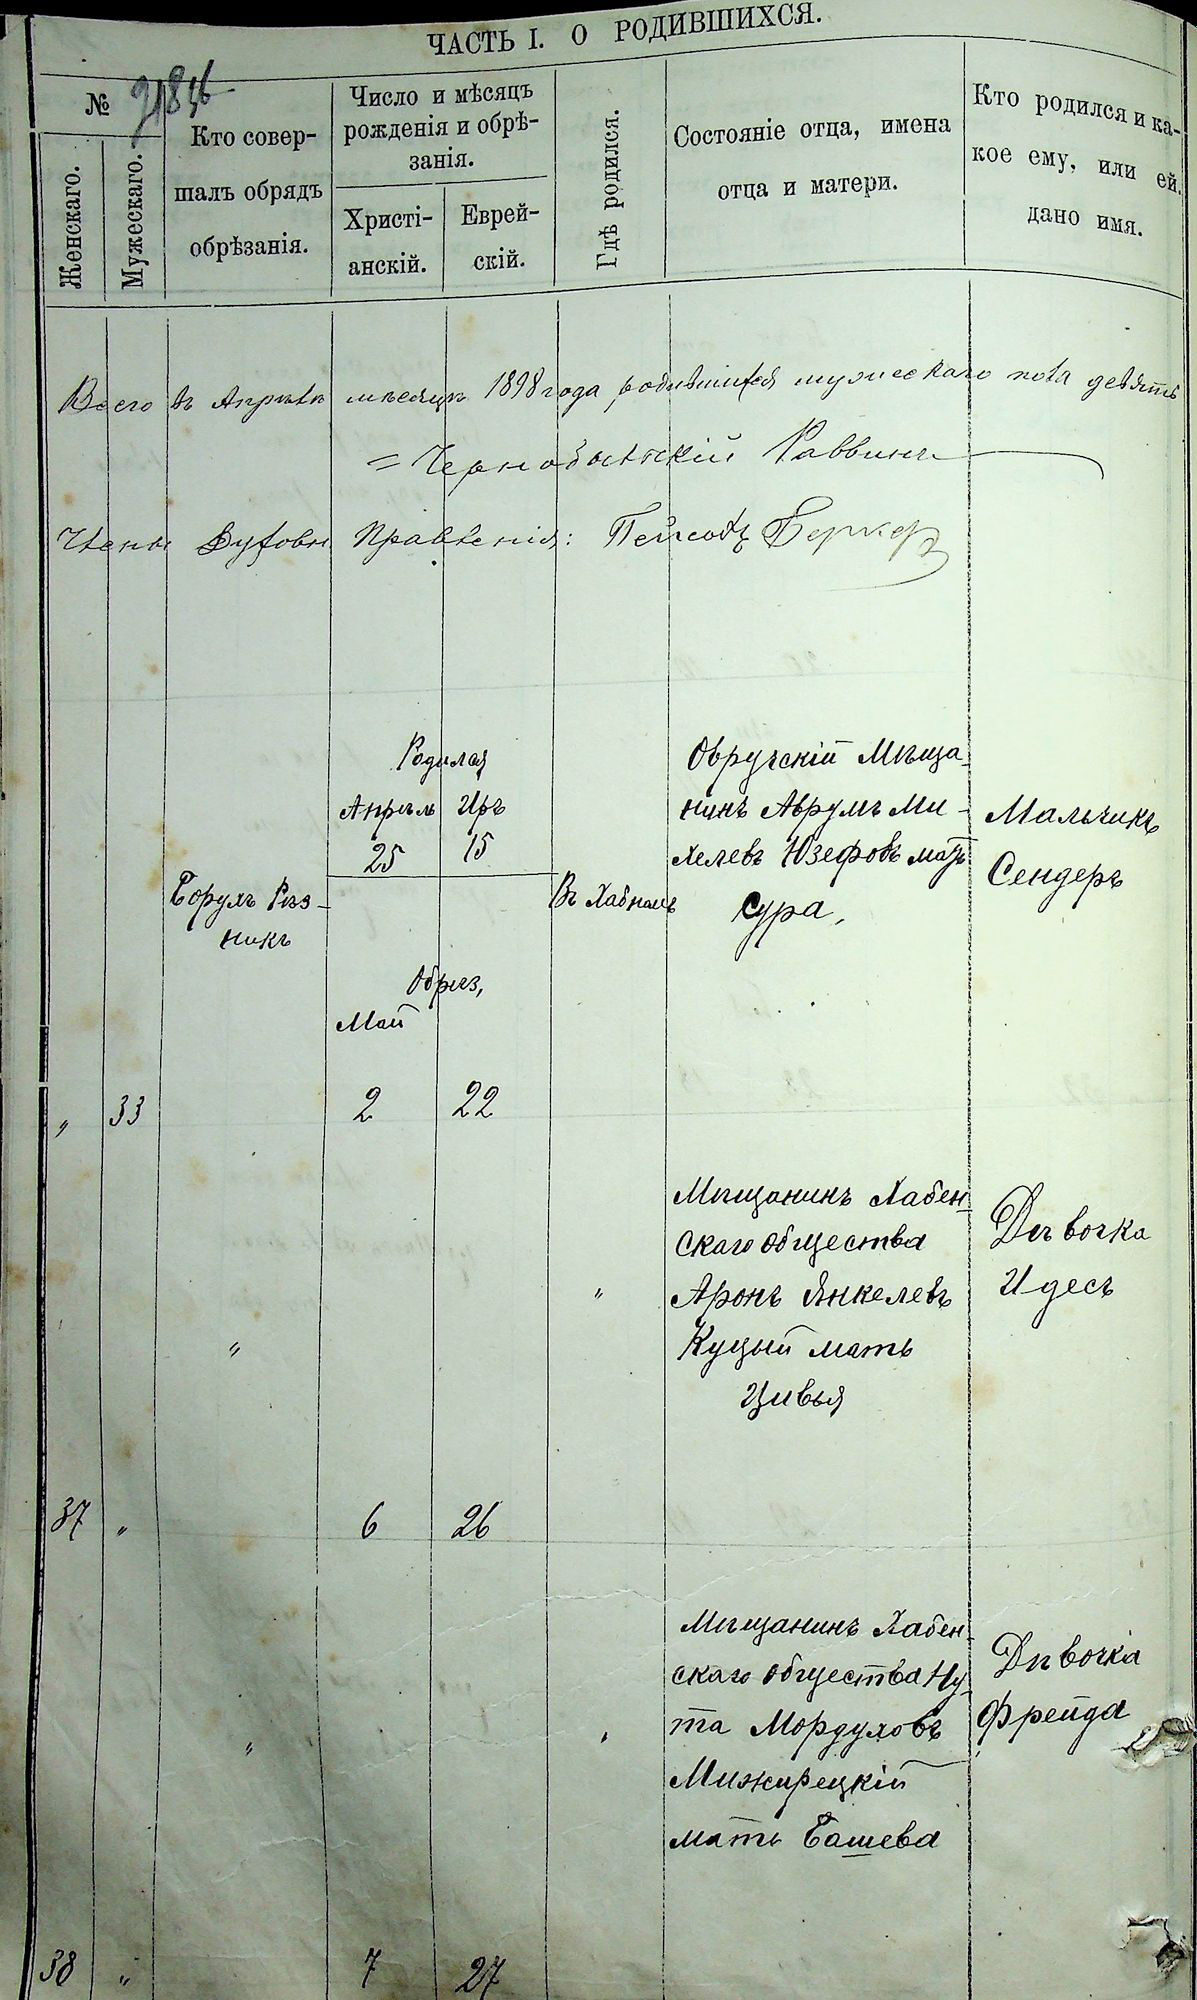 ЧАСТЬ I. О РОДИВШИХСЯ.
№
Женскаго.
Мужескаго.
Кто совер-
шалъ обрядъ
обрѣзанія.
Число и мѣсяцъ
рожденія и обрѣ-
занія.
Христі-
анскій.
Еврей-
скій.
Гдѣ родился.
Состояніе отца, имена
отца и матери.
Кто родился и ка-
кое ему, или ей,
дано имя.
Всего въ Апрѣлѣ мѣсяцѣ 1898 года родившихся мужескаго пола девять
= Чернобыльскій Раввинъ
Члены Духовн Правленія: Пейсохъ
Родился
Апрѣль Иръ
25 15
Борухъ Рѣз-
никъ
Въ Хабномъ
Обрѣз,
Май
„ 33 2 22
Овручскій Мѣща-
нинъ Аврумъ Ми-
хелевъ Юзефовъ мать
Сура,
Мальчикъ
Сендеръ
Мѣщанинъ Хабен-
скаго общества
Аронъ Янкелевъ
Куцый мать
Цивья
Дѣвочка
Идесъ
„ „
37 „ 6 26
Мѣщанинъ Хабен-
скаго общества Ну-
та Мордуховъ
Мижирецкій
мать Башева
Дѣвочка
Фрейда
„ „
38 „ 7 27